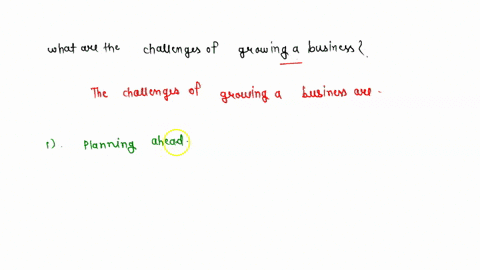 what are the challenges of growing a business?
The challenges of growing a business are -
1). Planning ahead.